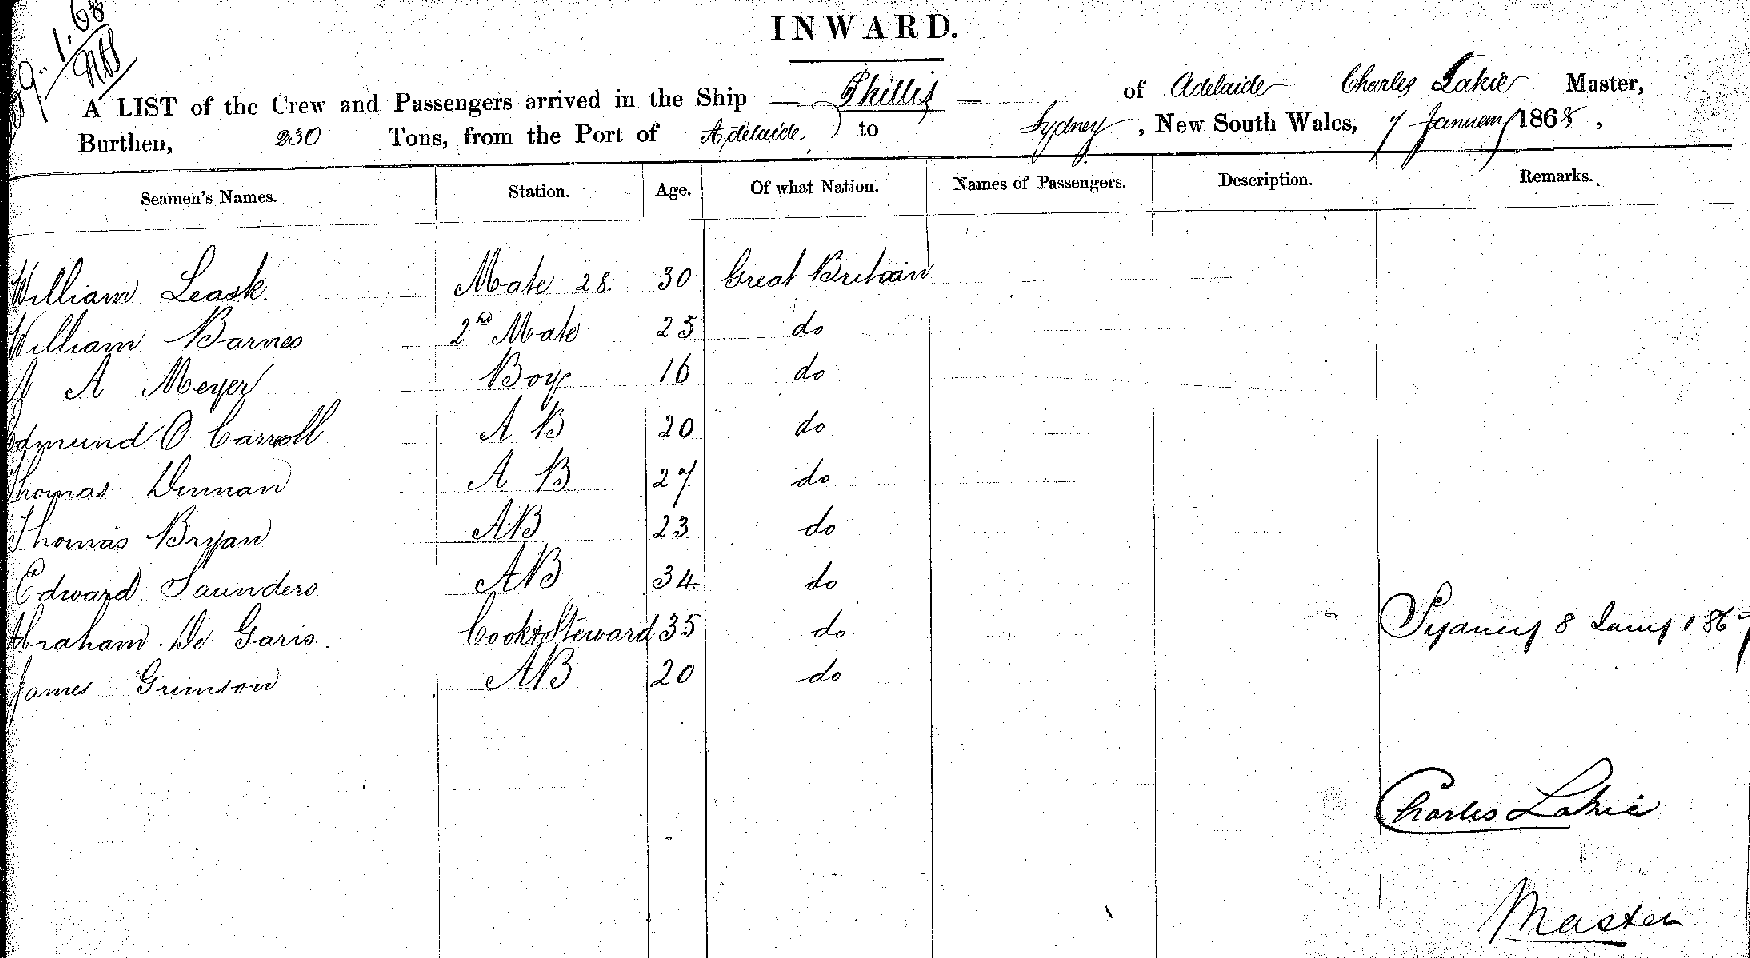 9.1.68
INWARD.
A LIST of the Crew and Passengers arrived in the Ship — Phillis — of Adelaide Charles Lakie Master,
Burthen, 230 Tons, from the Port of Adelaide, to Sydney, New South Wales, 7 January 1868,
Seamen's Names. Station. Age. Of what Nation. Names of Passengers. Description. Remarks.
William Leask Mate 28. 30 Great Britain
William Barnes 2nd Mate 25 do
A Meyer Boy 16 do
Edmund O Carroll A B 20 do
Thomas A B 27 do
Thomas Bryan AB 23 do
Edward Saunders AB 34 do
Abraham De Garis. Cook & Steward 35 do
Sydney 8 Jany 186
James Grimson AB 20 do
Charles Lakie
Master